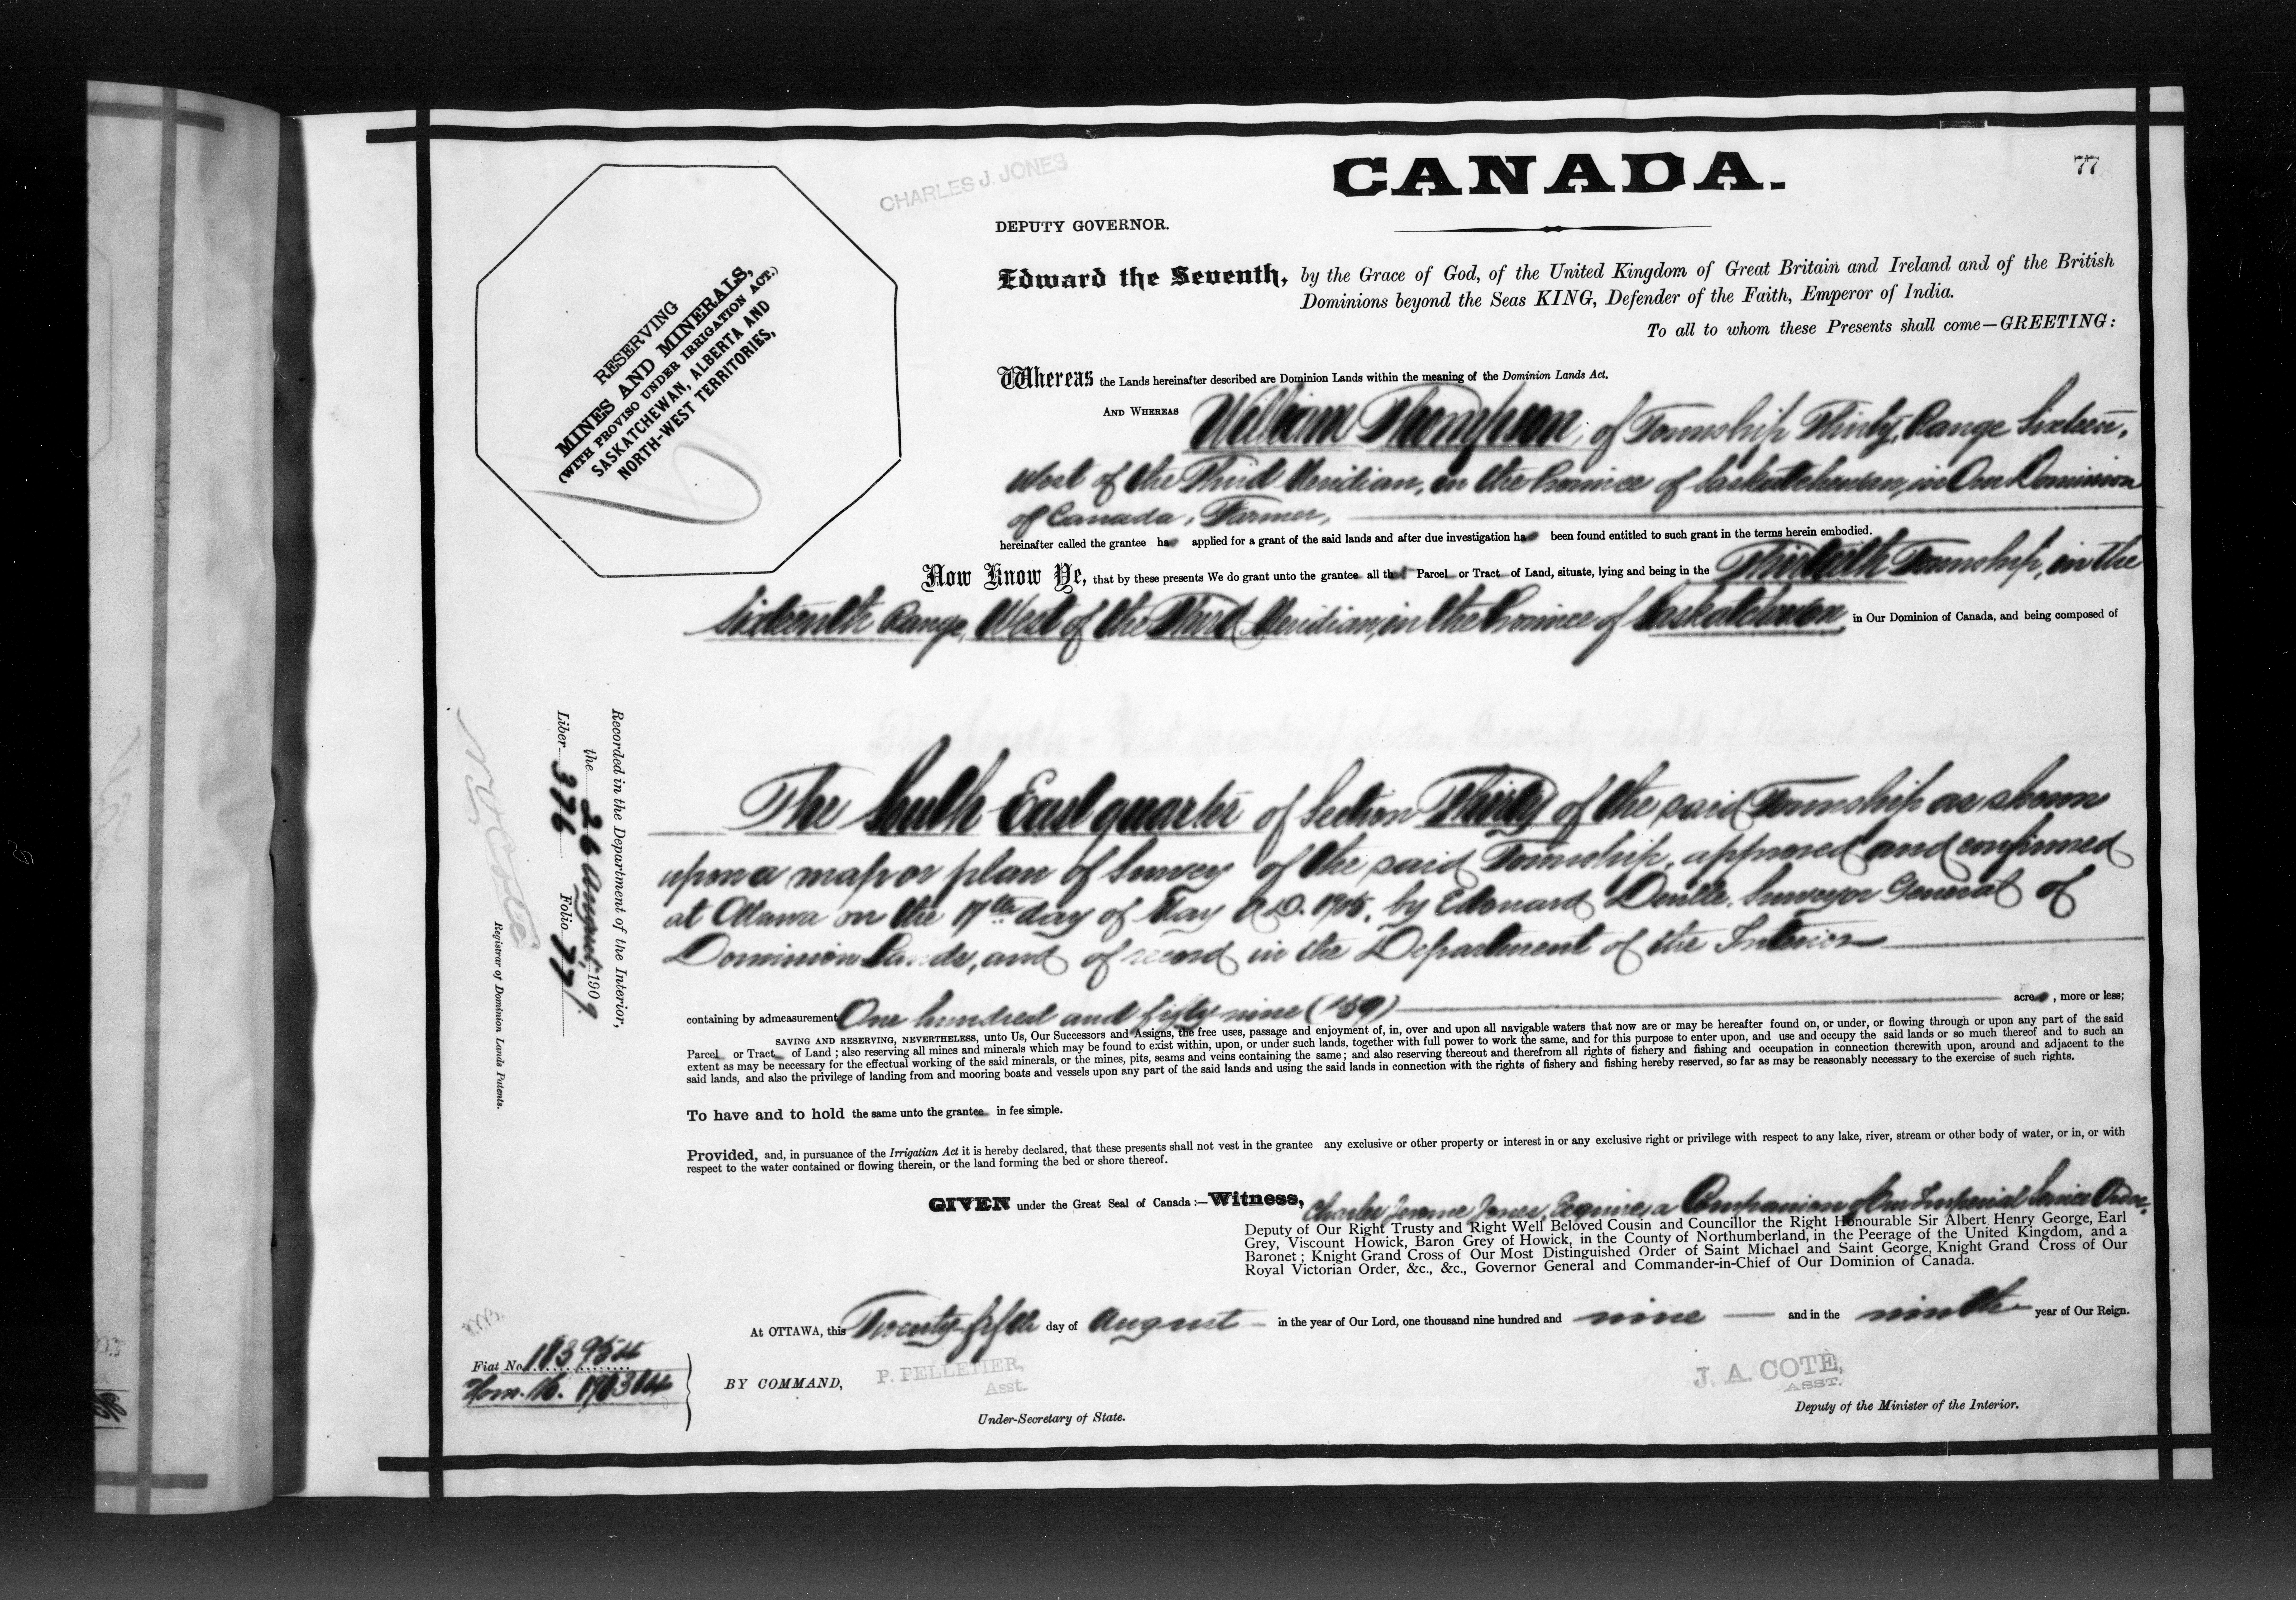 77
CANADA.
CHARLES J. JONES
DEPUTY GOVERNOR.
RESERVING
MINES AND MINERALS,
(WITH PROVISO UNDER IRRIGATION ACT.)
SASKATCHEWAN, ALBERTA AND
NORTH-WEST TERRITORIES,
Edward the Seventh, by the Grace of God, of the United Kingdom of Great Britain and Ireland and of the British
Dominions beyond the Seas KING, Defender of the Faith, Emperor of India.
To all to whom these Presents shall come—GREETING:
Whereas the Lands hereinafter described are Dominion Lands within the meaning of the Dominion Lands Act.
AND WHEREAS William Thompson, of Township Thirty, Range Sixteen,
West of the Third Meridian, in the Province of Saskatchewan, in Our Dominion
of Canada, Farmer,
hereinafter called the grantee has applied for a grant of the said lands and after due investigation has been found entitled to such grant in the terms herein embodied.
Now Know Ye, that by these presents We do grant unto the grantee all that Parcel or Tract of Land, situate, lying and being in the Thirtieth Township, in the
Sixteenth Range, West of the Third Meridian, in the Province of Saskatchewan, in Our Dominion of Canada, and being composed of
The South East quarter of Section Thirty of the said Township as shown
upon a map or plan of Survey of the said Township, approved and confirmed
at Ottawa on the 17th day of May A.D. 1905, by Edouard Deville, Surveyor General of
Dominion Lands, and of record in the Department of the Interior
containing by admeasurement One hundred and fifty nine (159) acres, more or less;
SAVING AND RESERVING, NEVERTHELESS, unto Us, Our Successors and Assigns, the free uses, passage and enjoyment of, in, over and upon all navigable waters that now are or may be hereafter found on, or under, or flowing through or upon any part of the said
Parcel or Tract of Land; also reserving all mines and minerals which may be found to exist within, upon, or under such lands, together with full power to work the same, and for this purpose to enter upon, and use and occupy the said lands or so much thereof and to such an
extent as may be necessary for the effectual working of the said minerals, or the mines, pits, seams and veins containing the same; and also reserving thereout and therefrom all rights of fishery and fishing and occupation in connection therewith upon, around and adjacent to the
said lands, and also the privilege of landing from and mooring boats and vessels upon any part of the said lands and using the said lands in connection with the rights of fishery and fishing hereby reserved, so far as may be reasonably necessary to the exercise of such rights.
To have and to hold the same unto the grantee in fee simple.
Provided, and, in pursuance of the Irrigatian Act it is hereby declared, that these presents shall not vest in the grantee any exclusive or other property or interest in or any exclusive right or privilege with respect to any lake, river, stream or other body of water, or in, or with
respect to the water contained or flowing therein, or the land forming the bed or shore thereof.
GIVEN under the Great Seal of Canada:—Witness, Charles Jerome Jones, Esquire, a Companion of Our Imperial Service Order,
Deputy of Our Right Trusty and Right Well Beloved Cousin and Councillor the Right Honourable Sir Albert Henry George, Earl
Grey, Viscount Howick, Baron Grey of Howick, in the County of Northumberland, in the Peerage of the United Kingdom, and a
Baronet; Knight Grand Cross of Our Most Distinguished Order of Saint Michael and Saint George, Knight Grand Cross of Our
Royal Victorian Order, &c., &c., Governor General and Commander-in-Chief of Our Dominion of Canada.
At OTTAWA, this Twenty-fifth day of August in the year of Our Lord, one thousand nine hundred and nine and in the ninth year of Our Reign.
BY COMMAND,
P. PELLETIER,
Asst.
Under-Secretary of State.
J. A. COTE,
ASST.
Deputy of the Minister of the Interior.
Recorded in the Department of the Interior,
the 26 August, 1909
Liber 376 Folio 77
N. O. Coté
Registrar of Dominion Lands Patents.
Fiat No. 183954